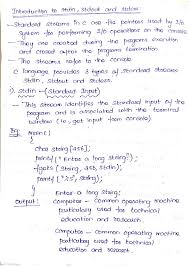 Introduction to stdin, stdout and stderr
- Standard streams in C are file pointers used by I/O
system for performing I/O operations on the console.
- They are created during the programs execution
and closed after the programs termination.
- The streams refer to the console.
C language provides 3 types of standard streams
stdin, stdout and stderr.
1) stdin - (Standard Input)
- This stream identifies the standard input of
the program and is associated with the terminal
window (i.e, get input from console)
Eg: main()
{
char string [256];
printf ("Enter a long string");
fgets (string, 256, stdin);
printf ("%s", string);
}
Output: Enter a long string:
Computer - Common operating machine
particularly used for technical
education and research.
Computer - Common operating machine
particularly used for technical
education and research.